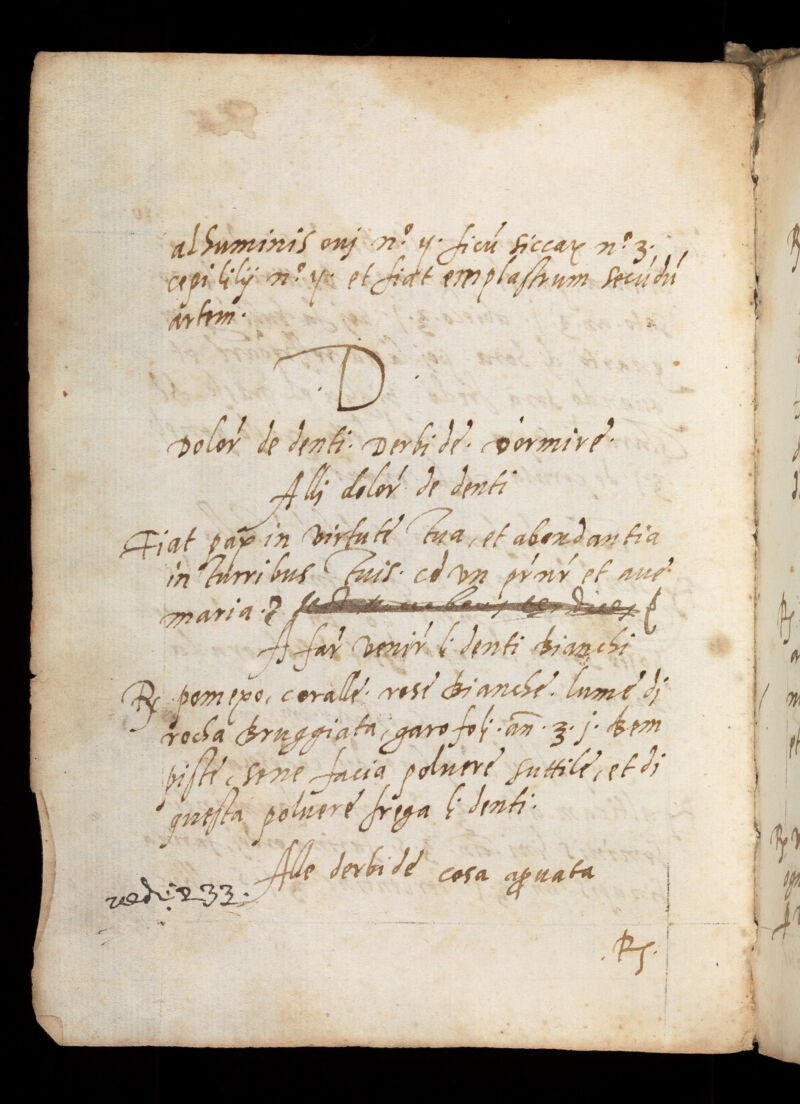 albuminis ouj n.º ij. ficú siccaꝝ n.º 3.
cepi lilij n.º ij. et fiat emplastrum secúdú
artem.
. D .
Dolor de denti. Derbide. Dormire.
Alli dolor de denti
Fiat pax in virtute tua, et abondantia
in turribus tuis. có un pr̄nr̄ et aue
maria.
A far venir li denti bianchi
Rx pomexo, coralle. rose bianche. lume di
rocha bruggiata, garofolj. añ. ʒ. j. bem
piste, sene facia poluere suttile, et di
questa poluere frega li denti.
Alle derbide cosa aꝓuata
vedi: 233.
. Rx.